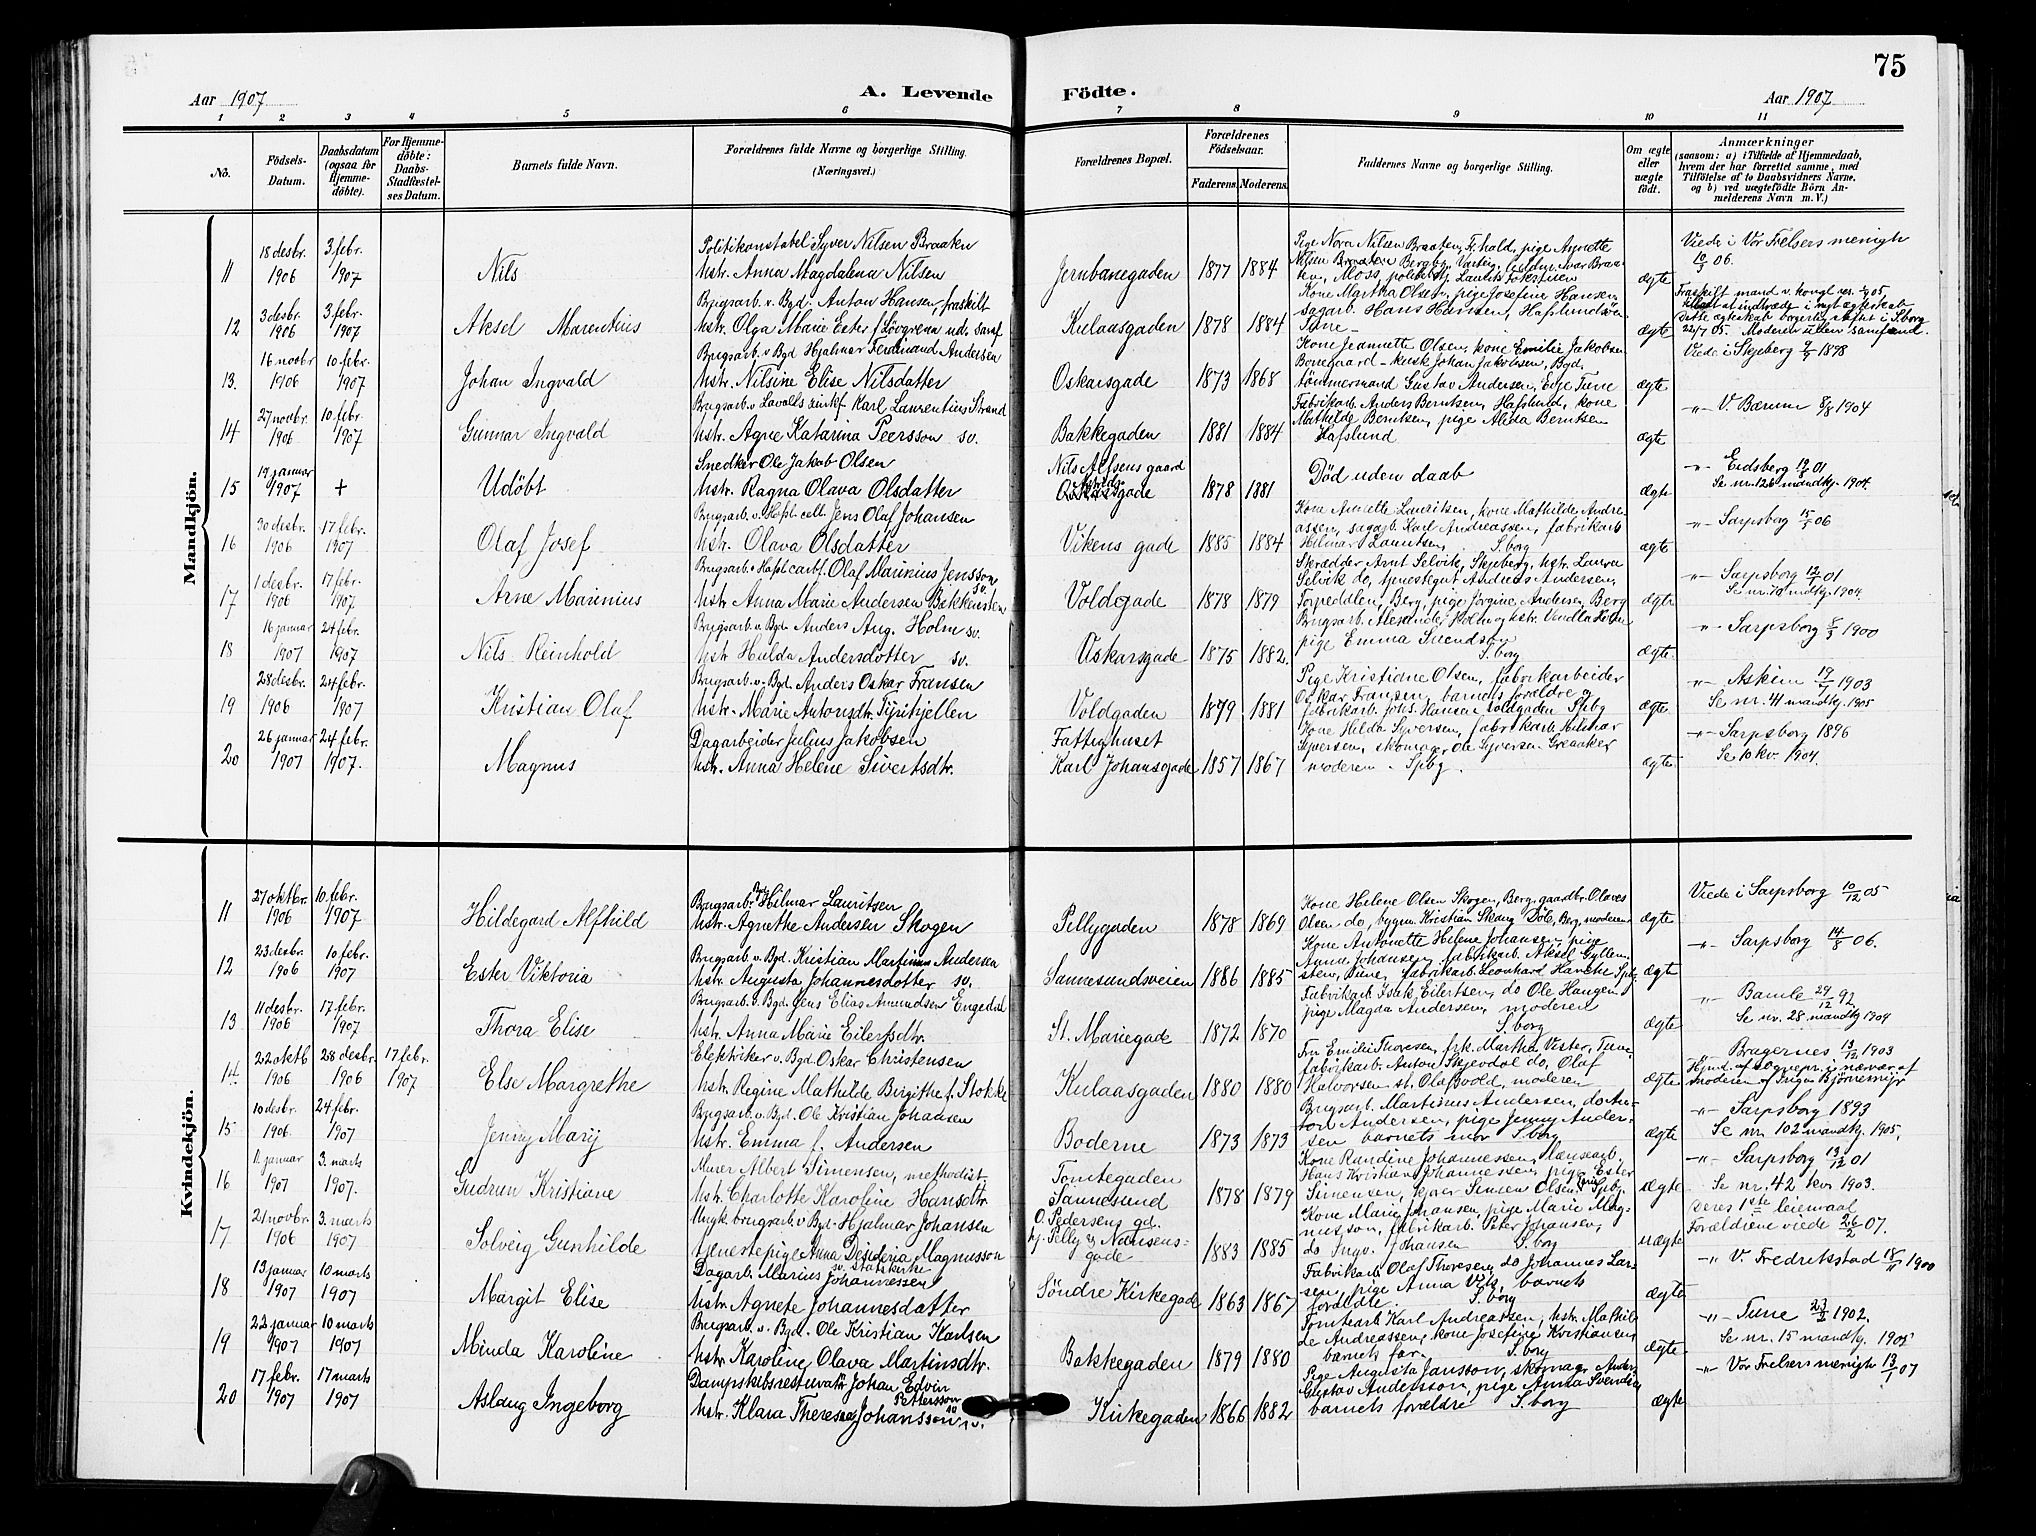 75
Aar 1907
A. Levende
Födte.
Aar 1907
1 2 3 4 5 6 7 8 9 10 11
No.
Födsels-
Datum.
Daabsdatum
(ogsaa for
Hjemme-
döbte).
For Hjemme-
döbte:
Daabs-
Stadfæstel-
ses Datum.
Barnets fulde Navn.
Forældrenes fulde Navne og borgerlige Stilling.
(Næringsvei.)
Forældrenes Bopæl.
Forældrenes
Födselsaar.
Faderens. Moderens.
Faddernes Navne og borgerlige Stilling.
Om ægte
eller
uægte
födt.
Anmærkninger
(saasom: a) i Tilfælde af Hjemmedaab,
hvem der har forrettet samme, med
Tilföielse af to Daabsvidners Navne.
og b) ved uægtefödte Börn An-
melderens Navn m. V.)
Mandkjön.
11
18 desbr.
1906
3 febr.
1907
Nils
Politikonstabel Syver Nilsen Braaten
hstr. Anna Magdalena Nilsen
Jernbanegaden
1877 1884
Pige Nora Nilsen Braaten, Fr.hald, pige Agnette
ægte
Viede i Vor Frelsers menigh
10/3 06.
12
3 desbr.
1906
3 febr.
1907
Aksel Marentius
Brugsarb. v. Bgd. Anton Hansen, fraskilt
hstr. Olga Marie Ester f. Lövgrena ud. samf
Kulaasgaden
1878 1884
Kone Martha Olsen, pige Josefine Hansen,
sagarb. Hans Hansen, Hafslundsöen
Tune
ægte
Fraskilt mand v. kongl. res.
tilladt at indtræde i nyt ægteskab
Dette ægteskab borgerlig stiftet i S.borg
22/7 05. Moderen uden samfund.
13.
16 novbr
1906
10 febr.
1907
Johan Ingvald
Brugsarb. v. Bgd Hjalmar Ferdinand Andersen
hstr. Nilsine Elise Nilsdatter
Oskarsgade
1873 1868
Kone Jeannette Olsen, kone Emilie Jakobsen
Borregaard - kusk Johan Jakobsen, Bgd.
tömmermand Gustav Andersen, Eidje Tune
ægte
Viede i Skjeberg 1898
14
27 novbr.
1906
10 febr.
1907
Gunnar Ingvald
Brugsarb. v. Lavolts zinkf Karl Laurentius Strand
hstr. Agne Katarina Peersson sv.
Bakkegaden
1881 1884
Fabrikarb. Anders Berntsen, Hafslund, kone
Mathilde Berntsen, pige Alida Berntsen
Hafslund
ægte
-"- V. Bærum 8/8 1904
15
19 januar
1907
+
Udöbt
Snedker Ole Jakob Olsen
hstr. Ragna Olava Olsdatter
Nils Alfsens gaard
1878 1881
Död uden daab
ægte
-"- Eidsberg 01
Se nr. 126 mandkj. 1904.
16
30 desbr.
1906
17 febr.
1907
Olaf Josef
Brugsarb. v. Hafsl. celt. Jens Olaf Johansen
hstr. Olava Olsdatter
Vikens gade
1885 1884
Kone Annette Lauritsen, kone Mathilde Andre-
assen, sagarb. Karl Andreassen, fabrikarb
Hilmar Lauritsen, S.borg
ægte
-"- Sarpsborg 15/1 06
17
1 desbr.
1906
17 febr.
1907
Arne Marinius
Brugsarb. v Hafsl. carbf. Olaf Marinius Jensson
sv.
hstr. Anna Marie Andersen Bakkensten
Voldgade
1878 1879
Skrædder Arnt Selvik, Skjeberg, hstr. Laura
Selvik do, tjenestegut Andreas Andersen,
Torpeddlen, Berg, pige Jörgine Andersen, Berg
ægte
-"- Sarpsborg 12/1 01
Se nr. 70 mdkj. 1904.
18
16 januar
1907
24 febr.
1907
Nils Reinhold
Brugsarb. v. Bgd. Anders Aug. Holm sv.
hstr Hulda Andersdotter sv.
Oskarsgade
1875 1882.
Brugsarb. Alexander Holm og hstr. Vendla Holm
pige Emma Svendson
S.borg
ægte.
-"- Sarpsborg 8/3 1900
19
28 desbr.
1906
24 febr.
1907
Kristian Olaf
Brugsarb. v. Bgd. Anders Oskar Fransen
hstr. Marie Antonsdtr. Fyrifjellen
Voldgaden
1879 1881
Pige Kristiane Olsen, fabrikarbeider
Oskar Fransen, barnets forældre og
fabrikarb. Johs. Hansen Voldgaden Spbg
ægte.
-"- Askim 19/7 1903
Se nr. 41 mandkj. 1905
20
26 januar
1907
24 febr.
1907.
Magnus
Dagarbeider Julius Jakobsen
hstr. Anna Helene Sivertsdtr.
Fattighuset
Karl Johansgade
1857 1867
Kone Hilda Syversen, fabrikarb. Hilmar
Syversen, skomager Ole Syversen Greaaker
moderen - Spbg.
ægte.
-"- Sarpsborg 1896
Se 10 kv. 1904.
Kvindekjön.
11
27 oktbr.
1906
10 febr.
1907
Hildegard Alfhild
Brugsarb. Bgd Hilmar Lauritsen
hstr. Agnethe Andersen Skogen
Pellygaden
1878 1869
Kone Helene Olsen Skogen, Berg, gaardbr. Olaves
Olsen do, bygm. Kristian Skaug Döle, Berg, moderen
ægte
Viede i Sarpsborg 10/12 05
12
23 desbr.
1906
10 febr.
1907
Ester Viktoria
Brugsarb. v. Bgd. Kristian Martinus Andersen
hstr. Augusta Johannesdotter sv.
Sannesundsveien
1886 1885
Kone Antonette Helene Johansen, pige
Anna Johansen, fabrikarb. Aksel Gyllen-
sten, Tune, fabrikarb. Leonhard Hancke Spbg
ægte
-"- Sarpsborg 14/8 06.
13
11 desbr.
1906
17 febr.
1907
Thora Elise
Brugsarb. v. Bgd. Jens Elias Amundsen Engedal
hstr. Anna Marie Eilertsdtr.
St. Mariegade
1872 1870
Fabrikarb. Isak Eilertsen, do Ole Haugen,
pige Magda Andersen, moderen
S.borg
ægte
-"- Bamle 29/12 92
Se nr. 28 mandkj 1904
14
22 oktb
1906
28 desbr.
1906
17 febr.
1907
Else Margrethe
Elektriker v. Bgd. Oskar Christensen
hstr. Regine Mathilde Birgithe f. Stokke
Kulaasgaden
1880 1880
Fru Emilie Thoresen, frk. Martha Vester, Tune
fabrikarb. Anton Skjevdal do, Olaf
Halvorsen st. Olafsvold, moderen
ægte
-"- Bragernes 13/12 1903
Hjmd. af Sognepr. i nærvær af
moderen og Inga Bjørnemyr
15
10 desbr.
1906
24 febr.
1907
Jenny Mary
Brugsarb. v. Bgd. Ole Kristian Johansen
hstr. Emma f. Andersen
Boderne
1873 1873
Brugsarb. Martinus Andersen, do An-
ton Andersen, pige Jenny Ander-
sen barnets mor S.borg
ægte
-"- Sarpsborg 1893
Se nr 102 mandkj. 1905.
16
11 januar
1907
3. marts
1907.
Gudrun Kristiane
Murer Albert Simensen, methodist
hstr. Charlotte Karoline Hansdtr
Tomtegaden
Sannesund
1878 1879
Kone Randine Johannessen, Hansearb.
Hans Kristian Johannessen, pige Ester
Simensen, Syver Simsen Olsen, Spbg.
ægte
-"- Sarpsborg 13/12 01
Se nr. 42 kv. 1903.
17
21 novbr.
1906
3. marts
1907
Solveig Gunhilde
Ungk. brugsarb. v Bgd. Hjalmar Johansen
tjenestepige Anna Desideria Magnusson
sv. statskirke
O. Pedersens gd.
hj. Pelly & Nansens-
gade
1883 1885
Kone Marie Johansen, pige Marie Mag-
nusson, fabrikarb. Peter Johansen,
do Ingv. Johansen S.borg
uægte
Deres 1ste leiermaal
Forældrene viede 26/2 07.
18
13 januar
1907
10 marts
1907
Margit Elise
Dagarb. Marius Johannessen
hstr. Agnete Johannesdatter
Söndre Kirkegade
1863 1867
Fabrikarb. Olaf Thoresen, do Johannes Lar-
sen, pige Anna Vik, barnets
forældre S.borg
ægte
-"- V. Fredrikstad 18/11 1900
19
22 januar
1907
10 marts
1907
Minda Karoline
Brugsarb. v. Bgd. Ole Kristian Karlsen
hstr. Karoline Olava Martinsdtr.
Bakkegaden
1879 1880
Tomtearb. Karl Andreassen, hstr. Mathil-
de Andreassen, kone Josefine Kristiansen
barnets far. S.borg
ægte
-"- Tune 1902.
Se nr. 15 mandkj. 1905
20
17 febr.
1907
17 marts
1907
Aslaug Ingeborg
Dampskibsrestauratör Johan Edvin
Pettersson sv
hstr. Klara Theresea Johansson sv.
Kirkegaden
1866 1882
Pige Augusta Jansson, skomager Anders
Gustav Andersson, pige Anna Svendsen
barnets forældre S.borg
ægte
-"- Vor Frelsers menigh 13/1 07